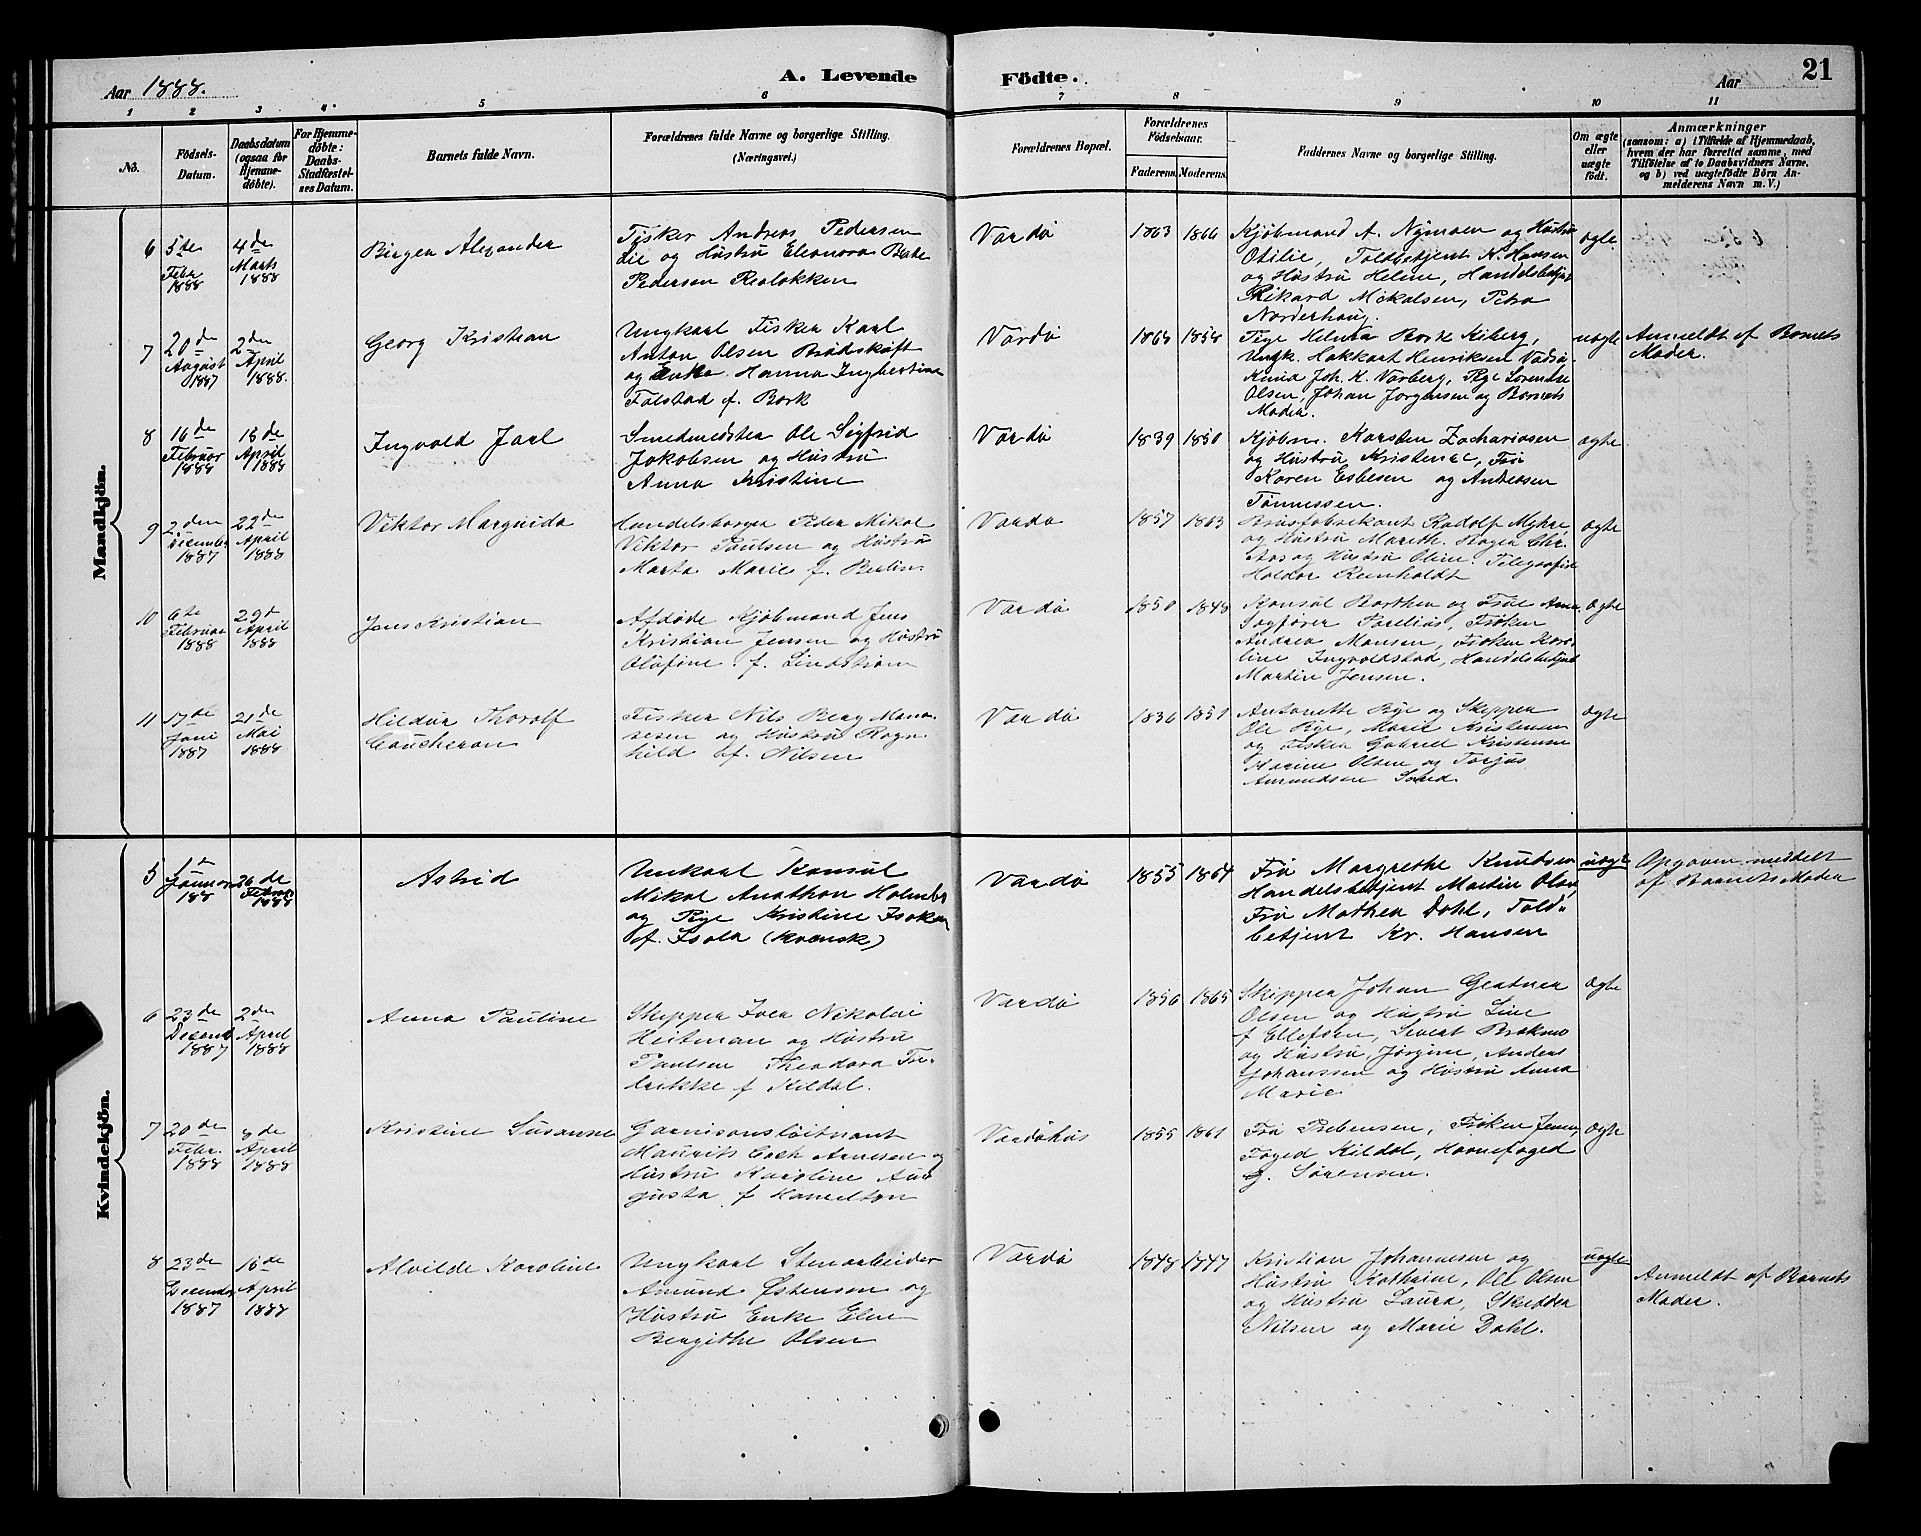 Aar 1888.
A. Levende Födte.
Aar
21
1 2 3 4 5 6 7 8 9 10 11
No.
Födsels-
Datum.
Daabsdatum
(ogsaa for
Hjemme-
döbte).
For Hjemme-
döbte:
Daabs-
Stadfæstel-
ses Datum.
Barnets fulde Navn.
Forældrenes fulde Navne og borgerlige Stilling.
(Næringsvei.)
Forældrenes Bopæl.
Forældrenes
Födselsaar.
Faderens. Moderens.
Faddernes Navne og borgerlige Stilling.
Om ægte
eller
uægte
født.
Anmærkninger
(saasom: a) i Tilfælde af Hjemmedaab,
hvem der har forrettet samme, med
Tilføielse af to Daabsvidners Navne,
og b) ved uægtefödte Börn An-
melderens Navn m. V.)
Mandkjön.
6
5te
Febr
1888
4de
Marts
1888
Birger Alexander
Fisker Andreas Pedersen
Lie og Hustru Eleonora Beate
Pedersen
Vardø
1863
1866
Kjøbmand A. Nymoen og Hustru
Otilie, Toldbetjent K. Hansen
og Hustru Helene, Handelsbetjent
Rikard Mikalsen, Petra
Norderhaug.
ægte
7
20de
August
1887
2den
April
1888.
Georg Kristian
Ungkarl Fisker Karl
Anton Olsen Brodskift
og Enke Hanna Ingbertine
Falstad f. Bork
Vardø
1864
1854
Pige Helena Bork Kiberg,
Ungk. Hakkart Henriksen Vadsø
Knud Joh. K. Varberg, Pige Lorentse
Olsen, Johan Jorgensen og Barnets
Moder.
uægte
Anmeldt af Barnets
Moder.
8
16de
Februar
1888
15de
April
1888
Ingvald Jarl
Smedmester Ole Sigfrid
Jakobsen og Hustru
Anna Kristine
Vardø
1839
1850
Kjøbm. Karsten Zachariasen
og Hustru Kristense, Frø
Karen Esbesen og Andreas
Tønnessen.
ægte
9
2den
December
1887
22de
April
1888
Viktor Marguido
Handelsborger Peder Mikal
Viktor Paulsen og Hustru
Marta Marie f. Berlin
Vardø
1857
1863
Brusfabrikant Rudolf Myhre
og Hustru Mareth. Bager Chr.
Aas og Hustru Oline. Telegrafist
Haldor Reinholdt
ægte
10
6te
Februar
1888
29de
April
1888
Jens Kristian
Afdøde Kjøbmand Jens
Kristian Jensen og Hustru
Olufine f. Lindstrøm
Vardø
1850
1848
Konsul Borthen og Frue Anna
Sagfører Forelius, Frøken
Andrea Monsen, Frøken Karo-
line Ingvoldstad, Handelsbetjent
Martin Jensen.
Ægte
11
17de
Juni
1887
21de
Mai
1888
Hildur Thorolf
Coucheron
Fisker Nils Berg Mona-
sesen og Hustru Ragn-
hild f. Nilsen
Vardø
1836
1851
Antonette Rye og Skipper
Ole Rye, Marie Kristensen
og Fisker Gabriel Kristensen
Marine Olsen og Torjus
Amundsen
ægte
Kvindekjön.
5
1de
Januar
188
26de
Februar
1888
Astrid
Unkarl Konsul
Mikal Anathon Holmboe
og Pige Kristine Isaksen
f. Isola (Kvensk)
Vardø
1855
1864
Frø Margrethe Knudsen
Handelsbetjent Martin Olsen,
Frø Mathea Dahl, Told-
betjent Kr. Hansen
uægte
Opgaven meddelt
af Barnets Moder
6
23de
Decemb
1887
2den
April
1888
Anna Pauline
Skipper Iver Nikolai
Heitman og Hustru
Paulsen Theodora Fre-
drikke f Kildal.
Vardø
1856
1865
Skipper Johan Geatner
Olsen og Hustru Line
f Ellefsen, Sivert Brækmo
og Hustru Jørgine, Anders
Johanssen og Hustru Anna
Marie
ægte
7
20de
Febr.
1888
8de
April
1888
Kristine Susanne
Garnisonsløitnant
Maurits Coch Arnesen og
Hustru Karoline Au-
gusta f Hamelton
Vardøhus
1855
1861
Frø Prebensen, Frøken Jensen,
Foged Kildal, Havnefoged
G. Sørensen.
Ægte
8
23de
Decemb
1887
15de
April
1888
Alvilde Karoline
Ungkarl Stenarbeider
Amund Østensen og
Hustru Enke Elen
Bergithe Olsen
Vardø
1848
1847
Kristian Johannesen og
Hustru Kathrine, Ole Olsen
og Hustru Laura, Skrædder
Nilsen og Marie Dahl.
uægte
Anmeldt af Barnets
Moder.